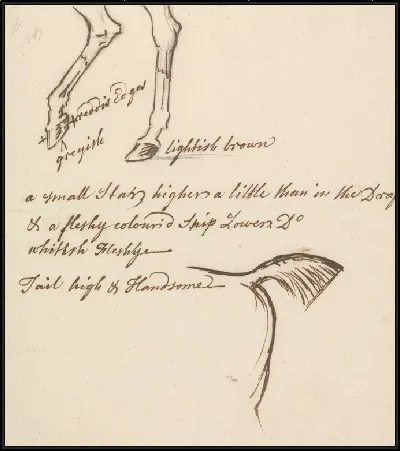 reddis Edges
greyish
lightish brown
a small Star higher a little than in the Draft
& a fleshy colour'd Snip Lower Do
whitish Fleshye
Tail high & Handsome